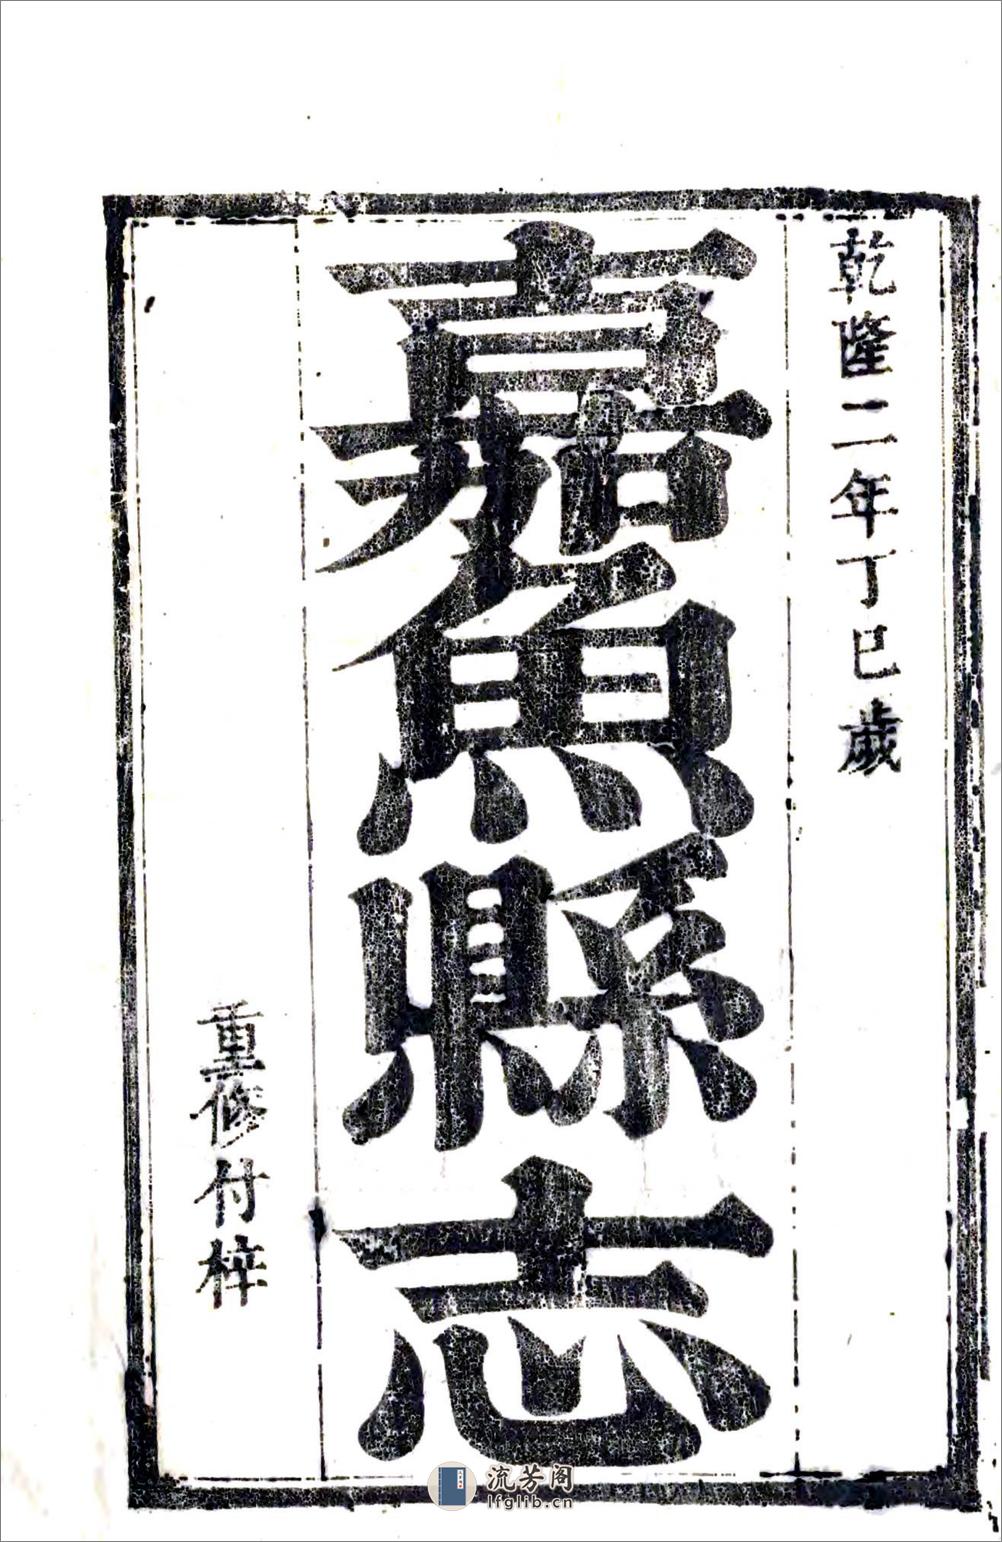 乾隆二年丁巳歲
嘉魚縣志
重修付梓
流芳阁
lfglib.cn